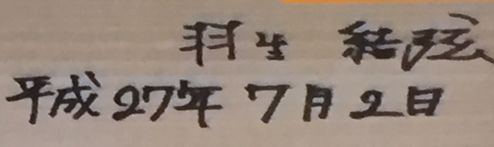 羽生 結弦
平成27年7月2日